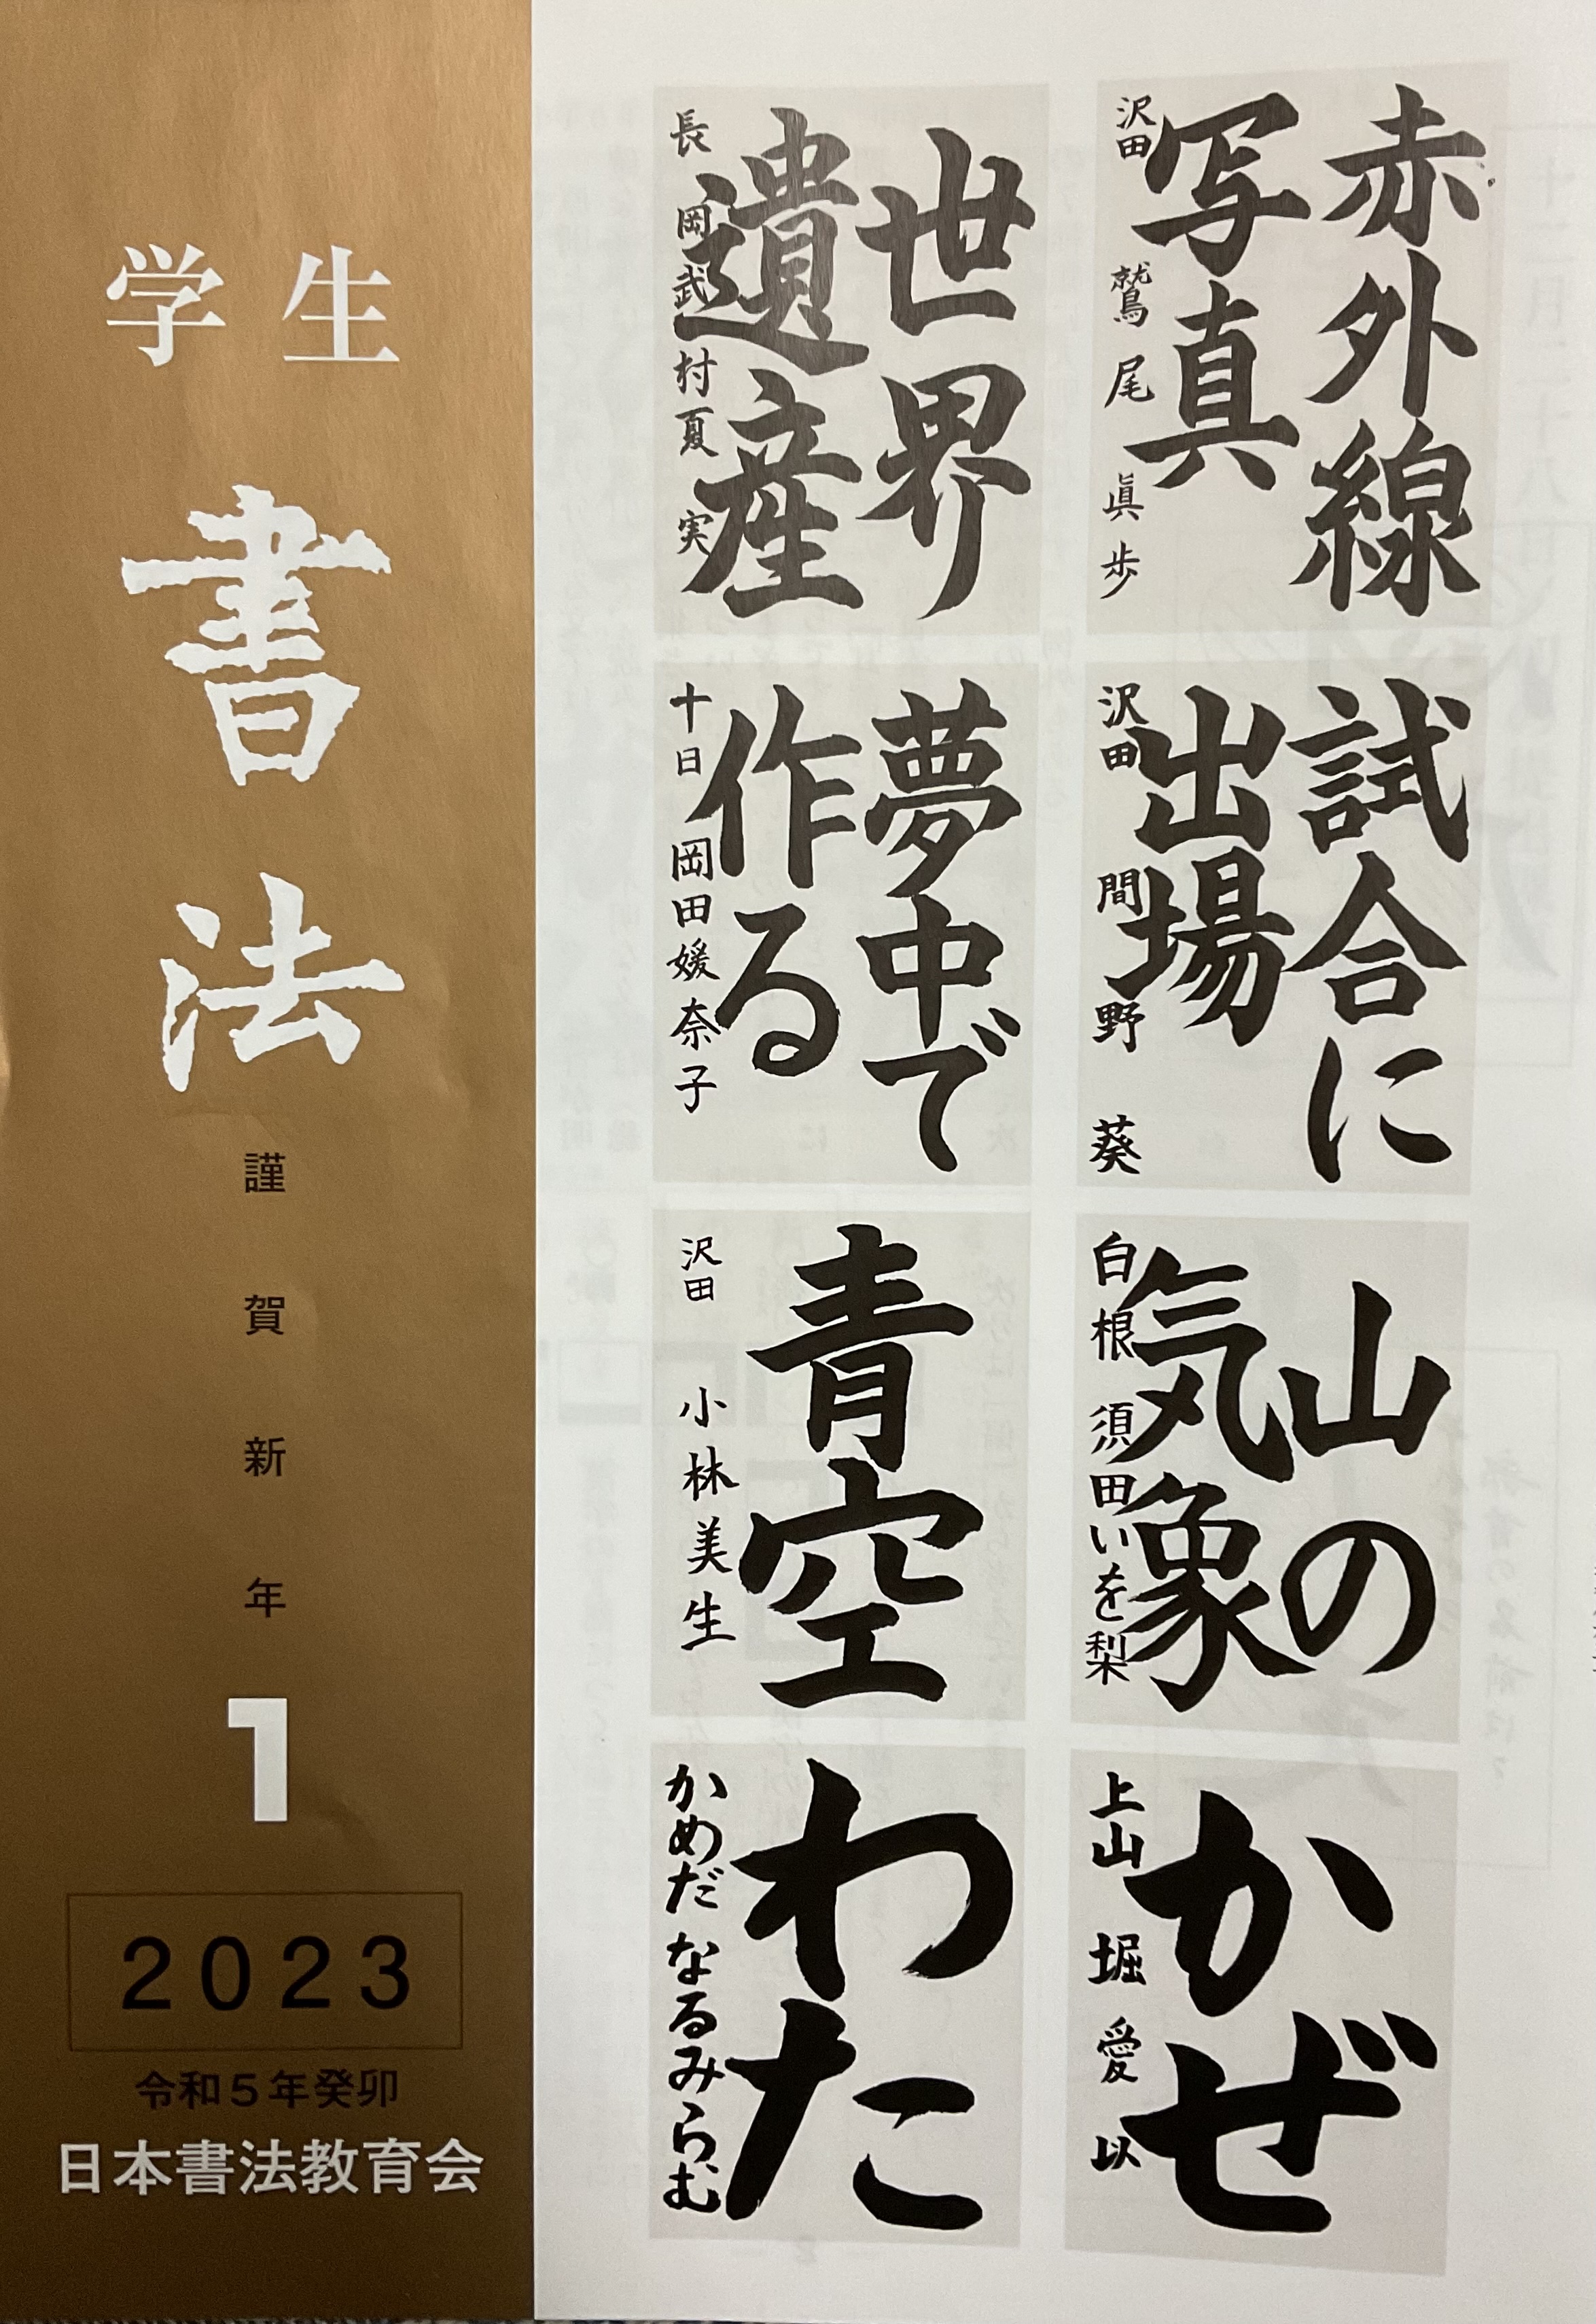 学生
書法
謹賀新年
1
2023
令和5年癸卯
日本書法教育会
赤外線
写真
沢田 鷲尾眞歩
世界
遺産
長岡 武村夏実
試合に
出場
沢田 間野葵
夢中で
作る
十日 岡田媛奈子
山の
気象
白根 須田いを梨
青空
沢田 小林美生
かぜ
上山 堀愛以
わた
かめだ なるみらむ